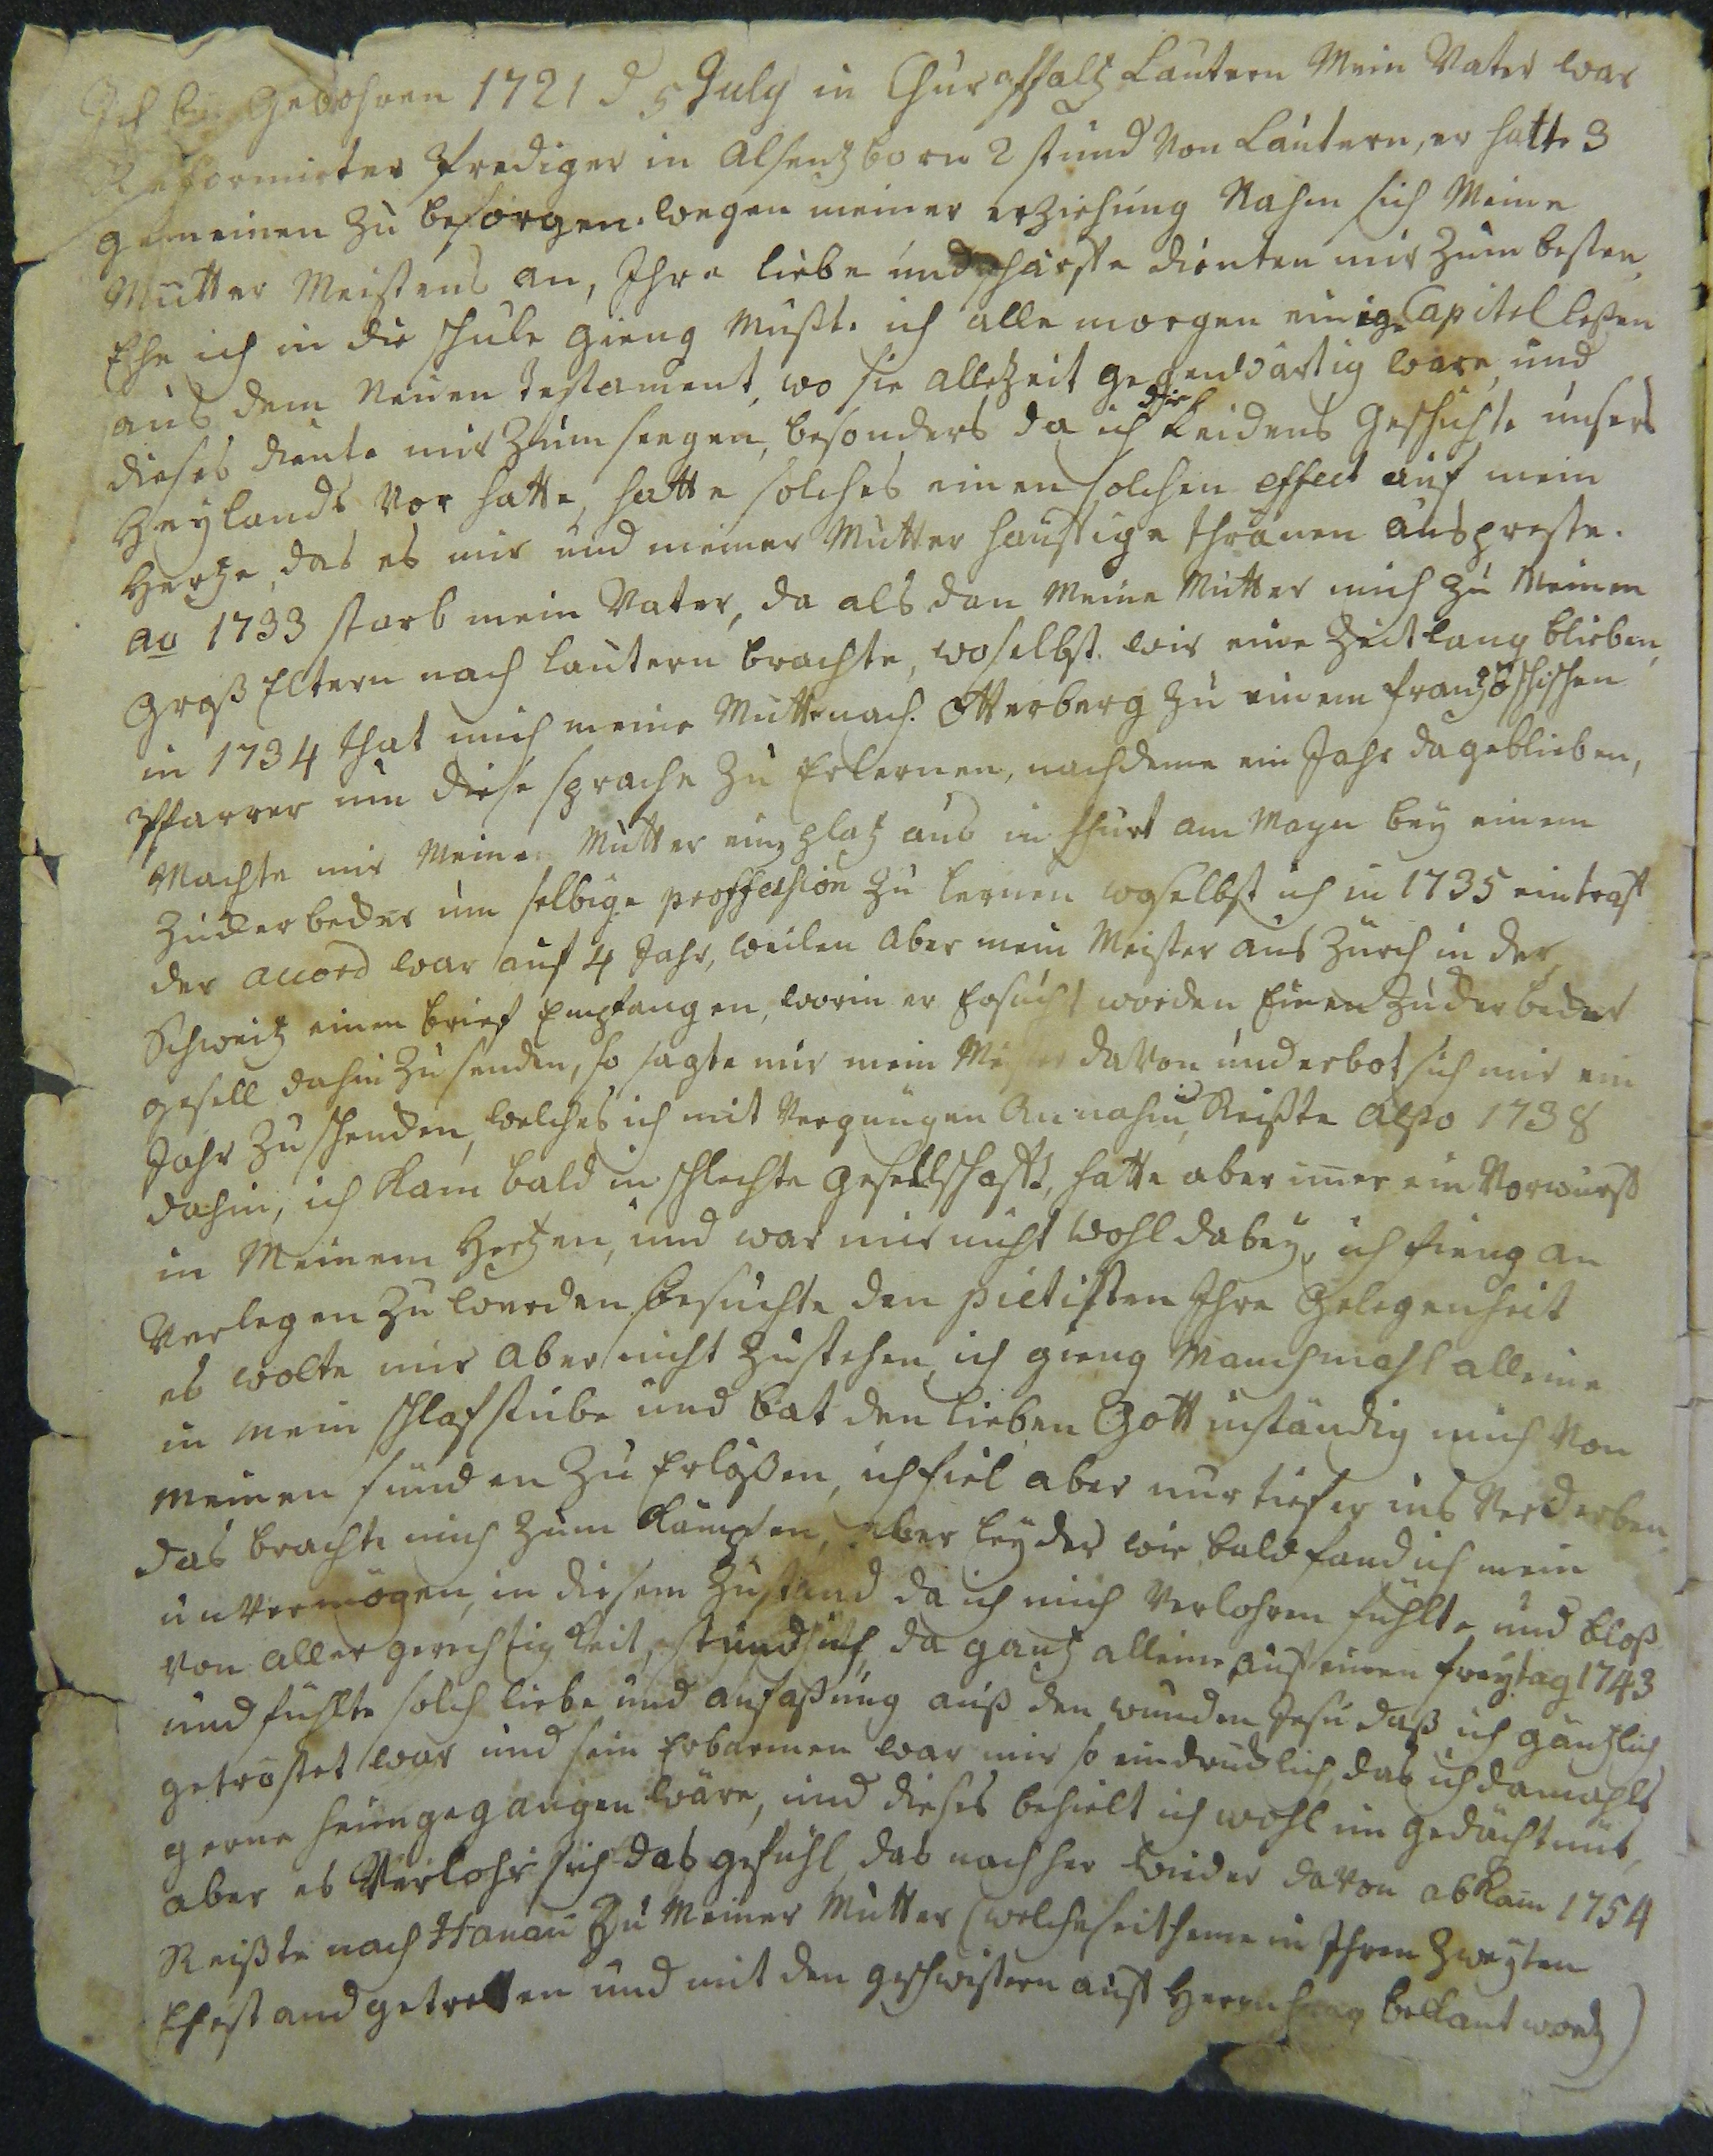 Ich bin Gebohren 1721 d 5 July in Churpffaltz Lautern Mein Vater war
Reformirter Prediger in Alsentzborn 2 stund Von Lautern, er hatte 3
gemeinen zu besorgen. wegen meiner erziehung Nahm sich Meine
Mutter Meistens an, Ihre liebe und schärffe dienten mir zum besten,
Ehe ich in die schule gieng Mußte ich alle morgen einige Capitel leßen
aus dem Neuen Testament, wo sie allezeit gegenwärtig ware, und
dieses diente mir zum seegen, besonders da ich die Leidens Geschichte unsers
Heylands Vor hatte, hatte solches einen solchen effect auf mein
Hertze, das es mir und meiner Mutter häuffige thränen auspreste.
ao 1733 starb mein Vater, da als dan Meine Mutter mich zu Meinen
Groß Eltern nach Lautern brachte, woselbst wir eine Zeitlang blieben,
in 1734 that mich meine Mutter nach Otterberg zu einem frantzöschischen
Pffarrer um diese sprache zu Erlernen, nachdeme ein Jahr da geblieben,
Machte mir Meine Mutter ein platz aus in ffurt am Mayn bey einem
Zuckerbecker um selbige proffession zu lernen woselbst ich in 1735 eintraff
der accord war auf 4 Jahr, weilen aber mein Meister aus Zürch in der
Schweitz einen brief Empfangen, worin er Ersucht worden Einen Zuckerbecker
gesell dahin zu senden, so sagte mir mein Meister davon und erbot sich mir ein
Jahr zu schencken, welches ich mit Vergnügen Annahm, Reißte Alßo 1738
dahin, ich Kam bald in schlechte Gesellschafft, hatte aber im̅er ein Vorwurff
in Meinem Hertzen, und war mir nicht wohl dabey, ich fieng an
Verlegen zu werden, besuchte den pietisten Ihre Gelegenheit
es wolte mir aber nicht zustehen, ich gieng Manchmahl alleine
in mein schlafstube und bat den lieben Gott inständig mich Von
meinen sünden zu Erlößen, ich fiel aber nur tiefer ins Verderben,
das brachte mich zum Kämpfen, aber leyder wie bald fand ich mein
unvermögen, in diesem Zustand da ich mich Verlohren fühlte und bloß
von aller gerechtigkeit, stund ich da gantz alleine auf einen freytag 1743
und fühlte solch liebe und anfaßung auß den wunden Jesu daß ich gäntzlich
getröstet war und sein Erbarmen war mir so eindrücklich, das ich damahls
gerne heimgegangen wäre, und dieses behielt ich wohl im gedächtnüs,
aber es Verlohr sich das gefühl, das nachher wieder davon abkam 1754
Reißte nach Hanau zu Meiner Mutter (welche seitheme in Ihren Zweyten
Ehestand getretten und mit den geschwistern auß Herrnhaag bekant word)